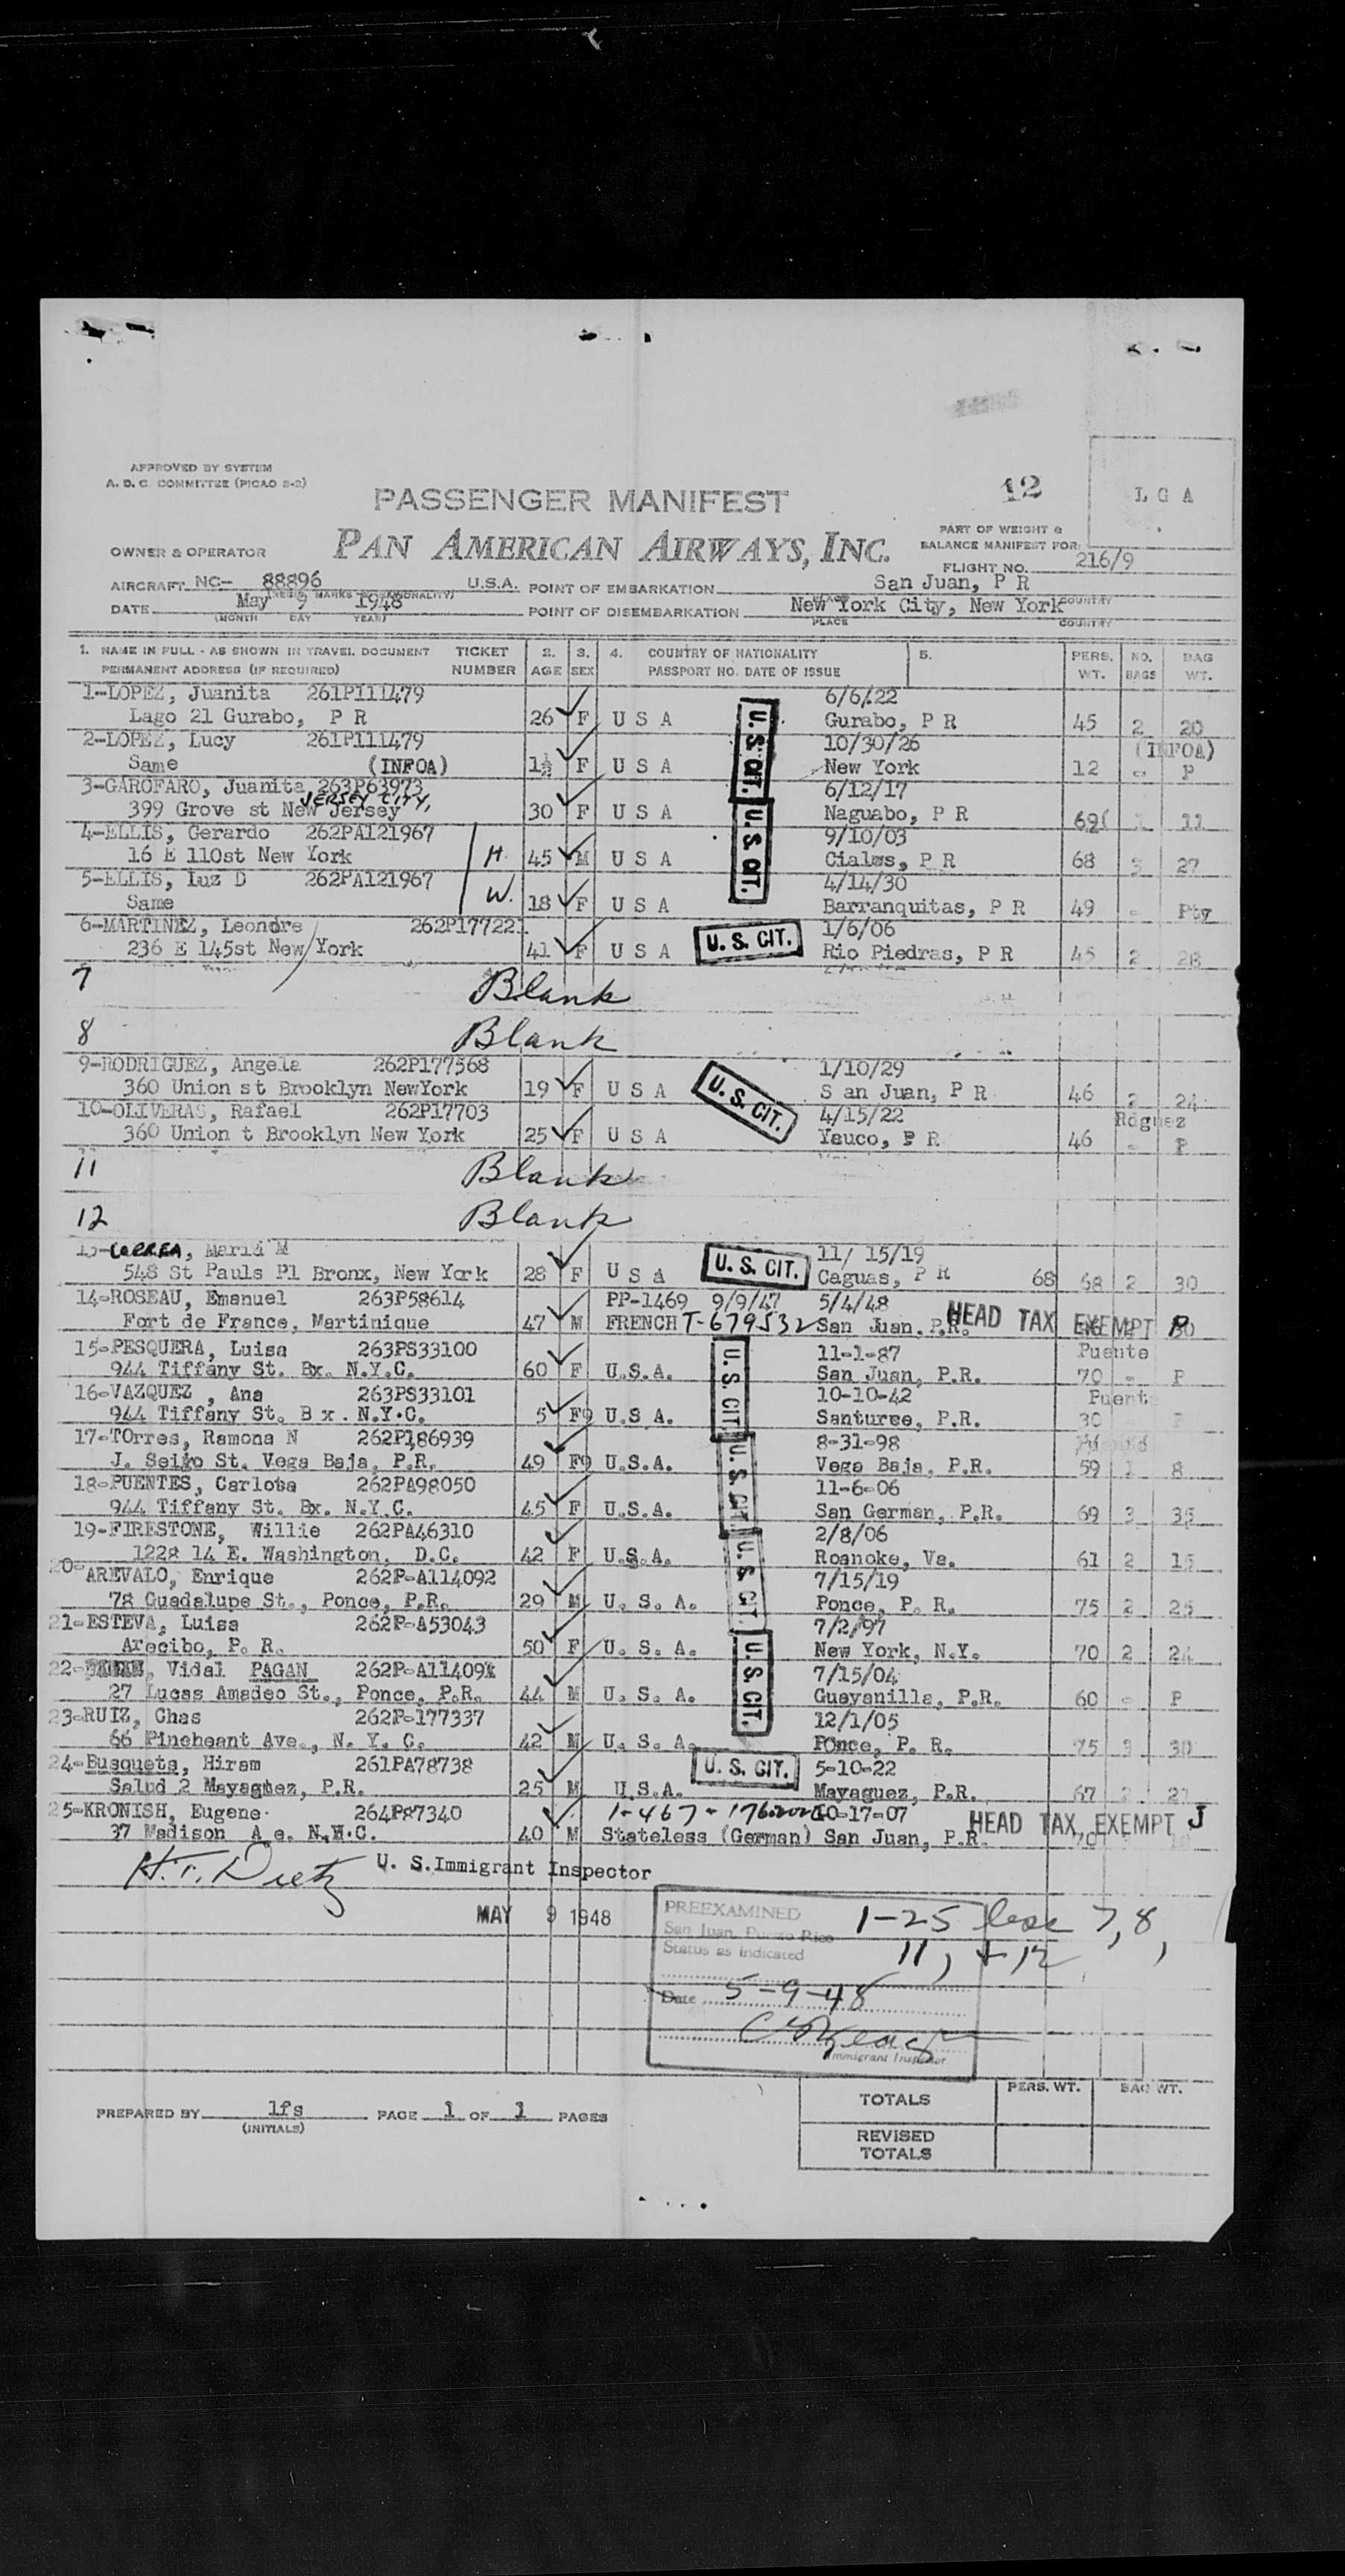 APPROVED BY SYSTEM
A. D. C. COMMITTEE (PICAO S-2)
PASSENGER MANIFEST
12
L G A
PAN AMERICAN AIRWAYS, INC.
PART OF WEIGHT &
BALANCE MANIFEST FOR:
OWNER & OPERATOR
FLIGHT NO. 216/9
AIRCRAFT NC- 88896 U.S.A. POINT OF EMBARKATION San Juan, P R
PLACE COUNTRY
DATE May 9 1948 POINT OF DISEMBARKATION New York City, New York
(MONTH DAY YEAR) PLACE COUNTRY
1. NAME IN FULL - AS SHOWN IN TRAVEL DOCUMENT TICKET 2. 3. 4. COUNTRY OF NATIONALITY 5. PERS. NO. BAG
PERMANENT ADDRESS (IF REQUIRED) NUMBER AGE SEX PASSPORT NO. DATE OF ISSUE WT. BAGS WT.
1-LOPEZ, Juanita 261P111479 6/6/22
Lago 21 Gurabo, P R 26 F U S A U. S. CIT. Gurabo, P R 45 2 20
2-LOPEZ, Lucy 261P111479 10/30/26 (INFOA)
Same (INFOA) 1½ F U S A New York 12 - P
3-GAROFARO, Juanita 263P63973 6/12/17
JERSEY CITY,
399 Grove st New Jersey 30 F U S A U. S. CIT. Naguabo, P R 69 11
4-ELLIS, Gerardo 262PA121967 9/10/03
16 E 110st New York H. 45 M U S A Ciales, P R 68 3 27
5-ELLIS, Luz D 262PA121967 4/14/30
Same W. 18 F U S A Barranquitas, P R 49 - Pty
6-MARTINEZ, Leonore 262P177221 1/6/06
236 E 145st New York 41 F U S A U. S. CIT. Rio Piedras, P R 45 2 28
7 Blank
8 Blank
9-RODRIGUEZ, Angela 262P177568 1/10/29
360 Union st Brooklyn NewYork 19 F U S A U. S. CIT. S an Juan, P R 46 2 24
10-OLIVERAS, Rafael 262P17703 4/15/22 Rdguez
360 Union t Brooklyn New York 25 F U S A Yauco, P R 46 - P
11 Blank
12 Blank
13-CORREA, Maria M 11/ 15/19
548 St Pauls Pl Bronx, New York 28 F U S A U. S. CIT. Caguas, P R 68 68 2 30
14-ROSEAU, Emanuel 263P58614 PP-1469 9/9/47 5/4/48
Fort de France, Martinique 47 M FRENCH T-679532 San Juan, P.R. HEAD TAX EXEMPT P
15-PESQUERA, Luisa 263PS33100 11-1-87 Puente
944 Tiffany St. Bx. N.Y.C. 60 F U.S.A. U. S. CIT. San Juan, P.R. 70 - P
16-VAZQUEZ , Ana 263PS33101 10-10-42 Puente
944 Tiffany St. B x . N.Y.C. 5 F9 U.S A. Santurce, P.R. 30
17-TOrres, Ramona N 262P186939 8-31-98
J. Seijo St. Vega Baja, P.R. 49 F9 U.S.A. U. S. CIT. Vega Baja, P.R. 59 1 8
18-PUENTES, Carlota 262PA98050 11-6-06
944 Tiffany St. Bx. N.Y.C. 45 F U.S.A. San German, P.R. 69 3 35
19-FIRESTONE, Willie 262PA46310 2/8/06
1228 14 E. Washington, D.C. 42 F U.S.A. U. S. CIT. Roanoke, Va. 61 2 15
20-AREVALO, Enrique 262P-A114092 7/15/19
78 Guadalupe St., Ponce, P.R. 29 M U. S. A. Ponce, P. R. 75 2 25
21-ESTEVA, Luisa 262P-A53043 7/2/97
Arecibo, P. R. 50 F U. S. A. U. S. CIT. New York, N.Y. 70 2 24
22- Vidal PAGAN 262P-A11409 7/15/04
27 Lucas Amadeo St., Ponce, P.R. 44 M U. S. A. Guayanilla, P.R. 60 - P
23-RUIZ, Chas 262P-177337 12/1/05
66 Pineheant Ave., N. Y. C. 42 M U. S. A. POnce, P. R. 75 3 30
24-Busquets, Hiram 261PA78738 5-10-22
Salud 2 Mayaguez, P.R. 25 M U.S.A. U. S. CIT. Mayaguez, P.R. 67 2 27
25-KRONISH, Eugene 264P87340 10-17-07
37 Madison A e. N.Y.C. 40 M Stateless (German) San Juan, P.R. HEAD TAX EXEMPT J
H. T. Dietz U. S. Immigrant Inspector
MAY 9 1948
PREEXAMINED
San Juan, Puerto Rico
Status as indicated
1-25 less 7, 8,
11, + 12
Date 5-9-48
Immigrant Inspector
TOTALS PERS. WT. BAG WT.
PREPARED BY lfs PAGE 1 OF 1 PAGES
(INITIALS)
REVISED
TOTALS